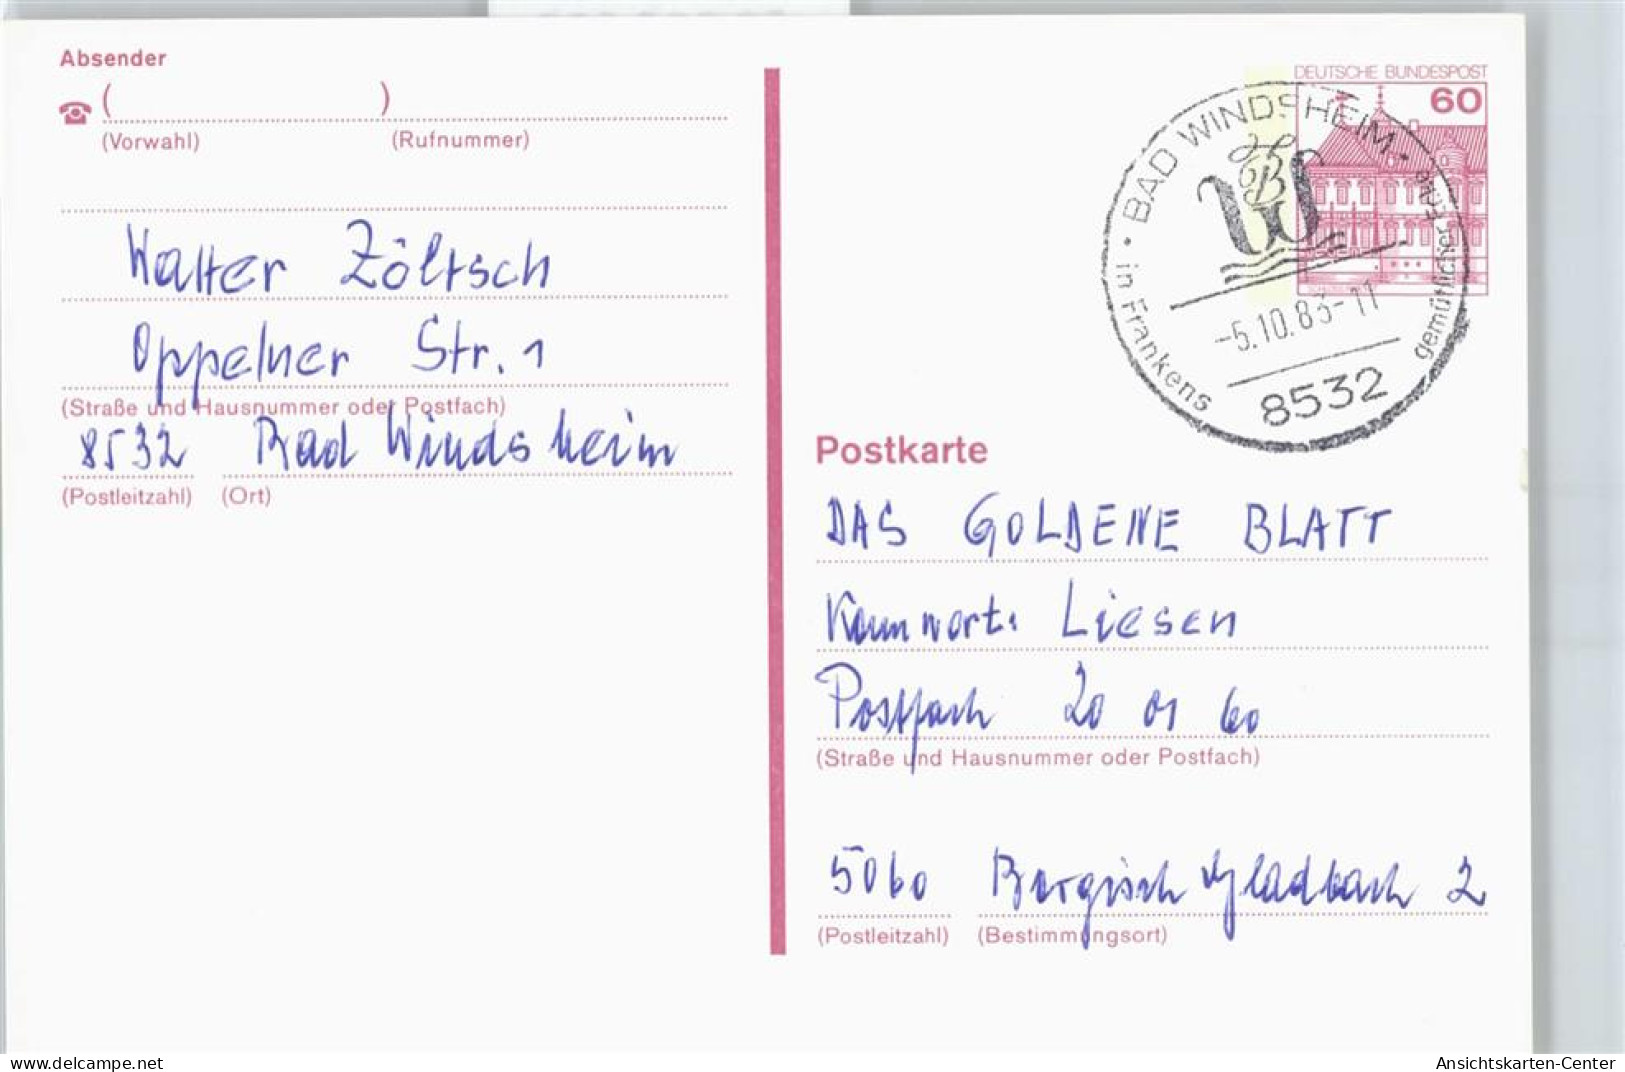 Absender
☎ ( )
(Vorwahl) (Rufnummer)
Walter Zöltsch
Oppelner Str. 1
(Straße und Hausnummer oder Postfach)
8532 Bad Windsheim
(Postleitzahl) (Ort)
DEUTSCHE BUNDESPOST
60
· BAD WINDSHEIM ·
in Frankens gemütlicher Ecke
-5.10.83-11
8532
Postkarte
DAS GOLDENE BLATT
Kennwort: Liesen
Postfach 20 01 60
(Straße und Hausnummer oder Postfach)
5060 Bergisch Gladbach 2
(Postleitzahl) (Bestimmungsort)
delcampe.net
Ansichtskarten-Center